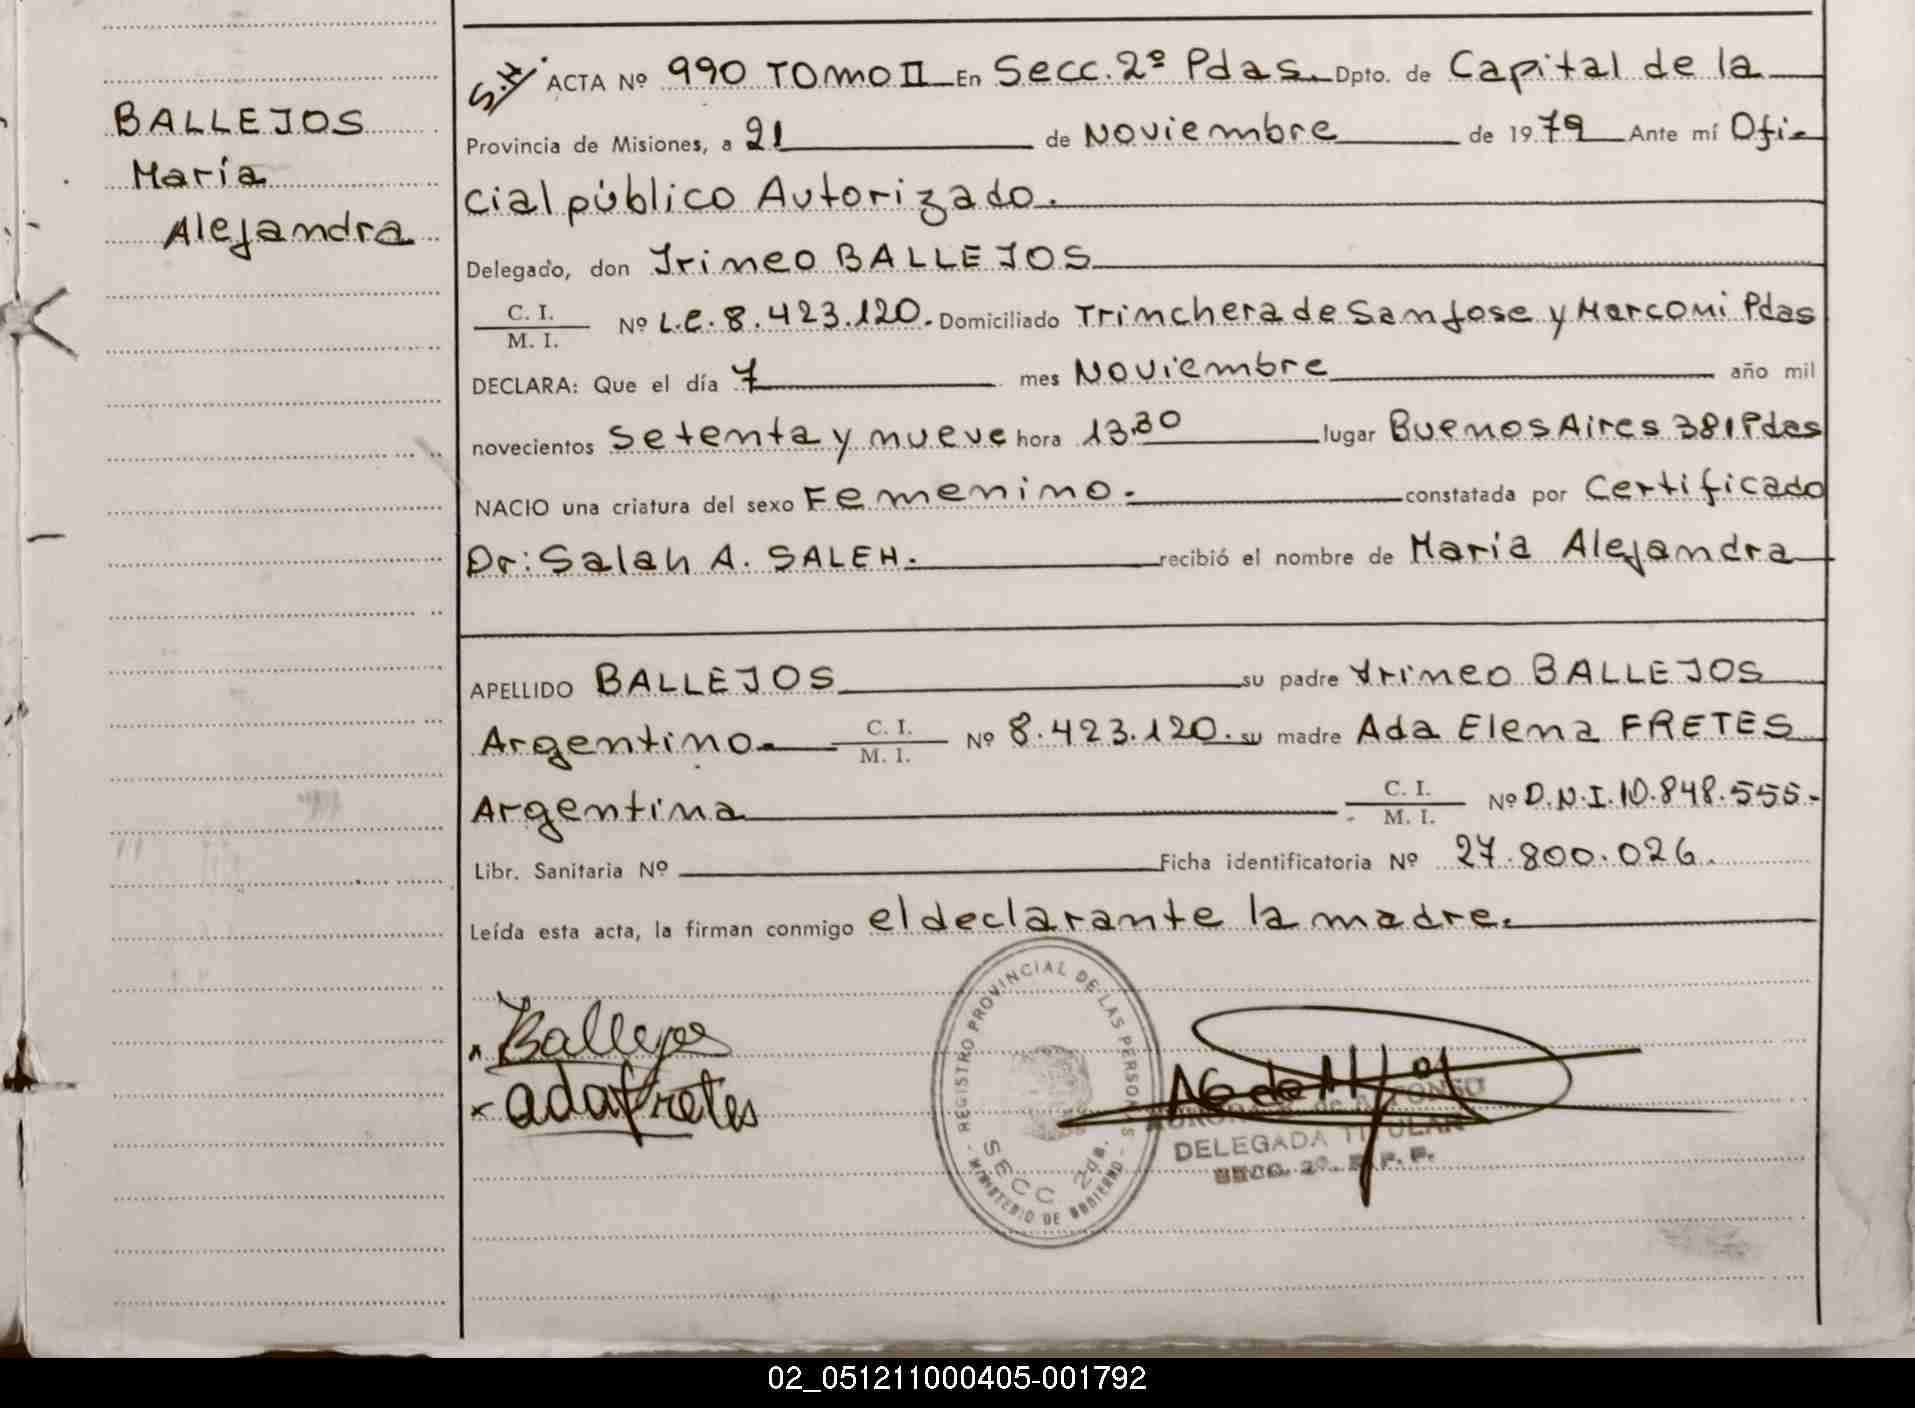 BALLEJOS
María
Alejandra
S.H. ACTA Nº 990 TOMO II En Secc. 2º Pdas. Dpto. de Capital de la
Provincia de Misiones, a 21 de Noviembre de 1979 Ante mí Ofi-
cial público Autorizado.
Delegado, don Irineo BALLEJOS
C. I.
M. I.
Nº L.E. 8.423.120. Domiciliado Trinchera de San Jose y Marconi Pdas
DECLARA: Que el día 7 mes Noviembre año mil
novecientos setenta y nueve hora 13,30 lugar Buenos Aires 381 Pdas
NACIO una criatura del sexo Femenino. constatada por Certificado
Dr: Salah A. SALEH. recibió el nombre de María Alejandra
APELLIDO BALLEJOS su padre Irineo BALLEJOS
Argentino. C. I.
M. I.
Nº 8.423.120. su madre Ada Elena FRETES
Argentina C. I.
M. I.
Nº D.N.I. 10.848.555.
Libr. Sanitaria Nº Ficha identificatoria Nº 27.800.026.
Leída esta acta, la firman conmigo el declarante la madre.
x Ballejos
x ada fretes
REGISTRO PROVINCIAL DE LAS PERSONAS
SECC 2da.
- MINISTERIO DE GOBIERNO -
DELEGADA TITULAR
SECC. 2º
02_051211000405-001792